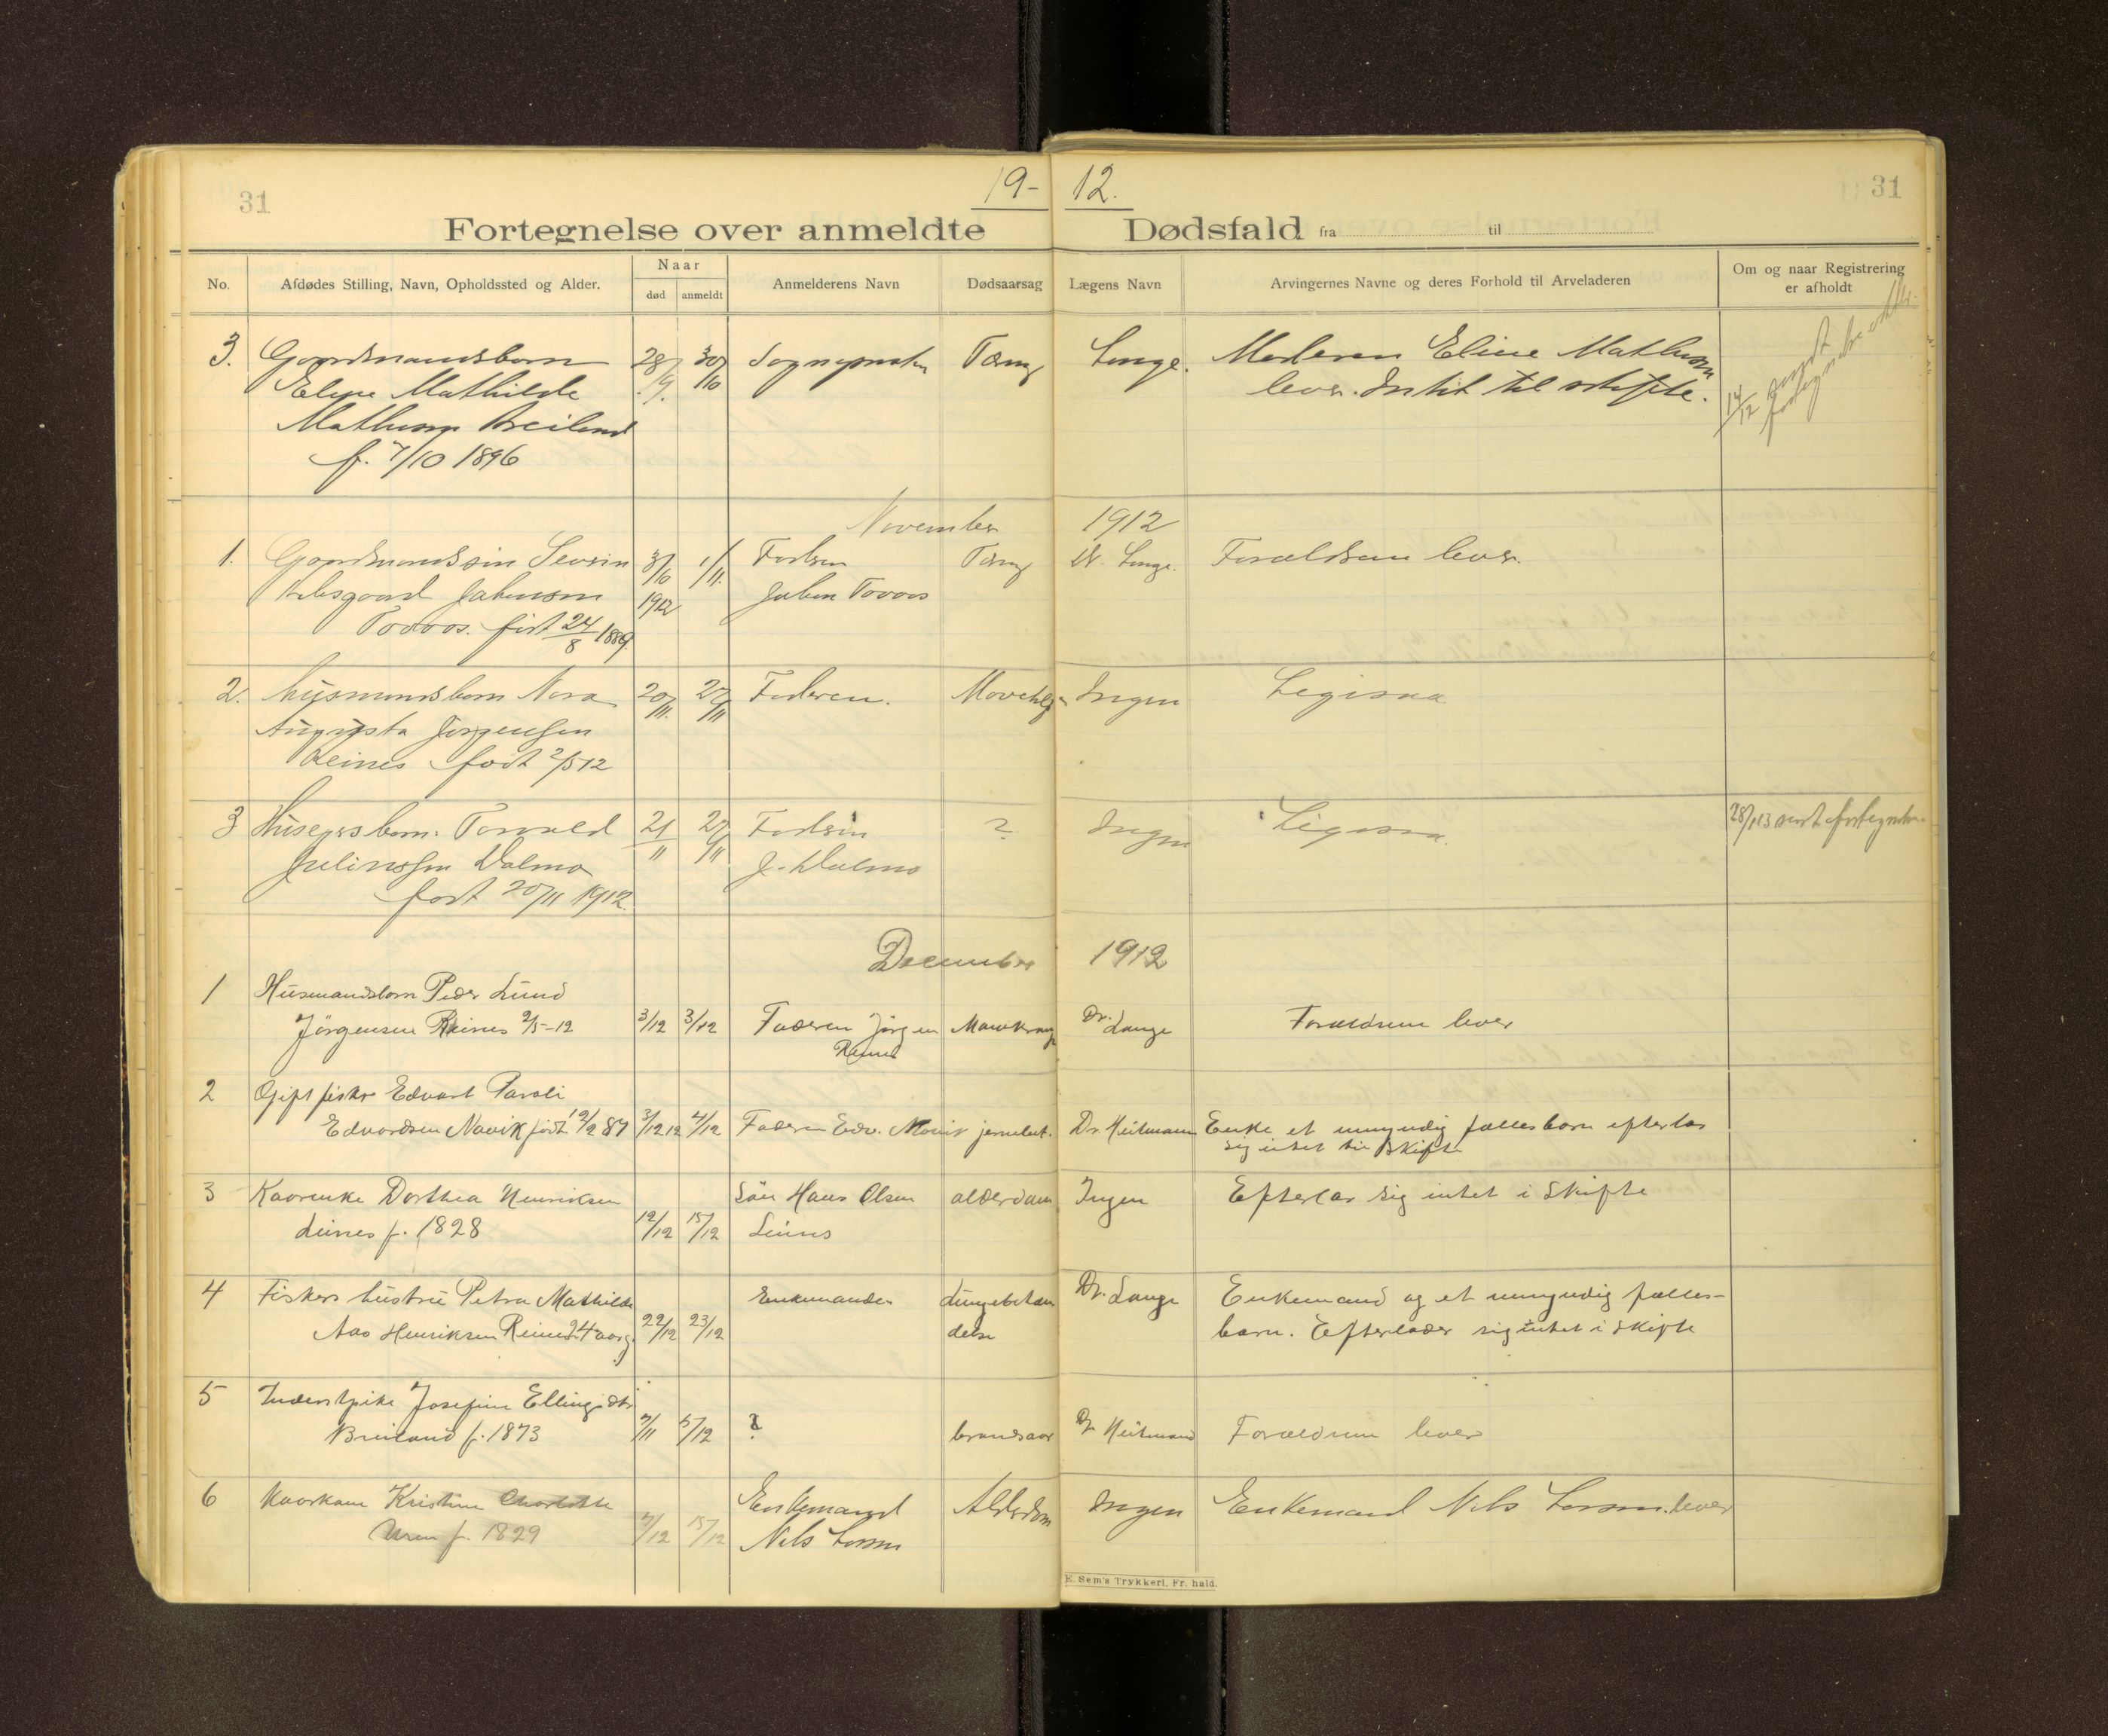 31
19-
12.
31
Fortegnelse over anmeldte
Dødsfald fra til
No.
Afdødes Stilling, Navn, Opholdssted og Alder.
Naar
død
anmeldt
Anmelderens Navn
Dødsaarsag
Lægens Navn
Arvingernes Navne og deres Forhold til Arveladeren
Om og naar Registrering
er afholdt
3. Gaardmandsbarn 28/9. 30/10 Sognepresten Tæring Lange. Moderen Eline Mathisen
Mathilde lever. Intet til skifte.
Mathisen Breiland
f. 7/10 1896
14/12
November 1912
1. Gaardmandssøn Severin 31/10 1/11. Faderen Tæring Dr. Lange. Forældrene lever.
1912
født 24/8 1889
2. Husmandsbarn Nora 20/11. 27/11 Faderen. Ingen Ligesaa
Augusta Jørgensen
Reines født 2/5 12
3 Torvald 21/11 27/11 Faderen ? Ingen Ligesaa. 28/1 13 sendt fortegnelse
Valmo J. Valmo
født 20/11 1912.
December 1912
1 Husmandsbarn Peder Lund
Jörgensen Reines 2/5-12 3/12 3/12 Faderen Jörgen Dr. Lange Forældrene lever
Reines
2 Gift fisker Edvart Paroli
Edvardsen født 19/2 87 3/12 12 4/12 Faderen Edv. Dr. Heitmann Enke et umyndig fællesbarn efterlar
sig intet til skifte
3 Kaarenke Dorthea Henriksen Sön Hans Olsen alderdom Ingen Efterlar sig intet i skifte
Leines f. 1828 12/12 15/12 Leines
4 Fiskers hustru Petra Mathilde Enkemanden Lungebetæn Dr. Lange Enkemand og et umyndig fælles-
Aas Henriksen Reines 24 aarg. 22/12 23/12 delse barn. Efterlader sig intet i skifte
5 Inderstpike Josefine Ellingsdtr
Breiland f. 1873 7/11 5/12 ? brandsaar Dr Heitmand Forældrene lever
6 Kaarkone Kristine Charlotte Enkemand Alderdom Ingen Enkemand Nils Larsen. lever
Uren f. 1829 7/12 15/12 Nils Larsen
E. Sem's Trykkeri, Fr. hald.